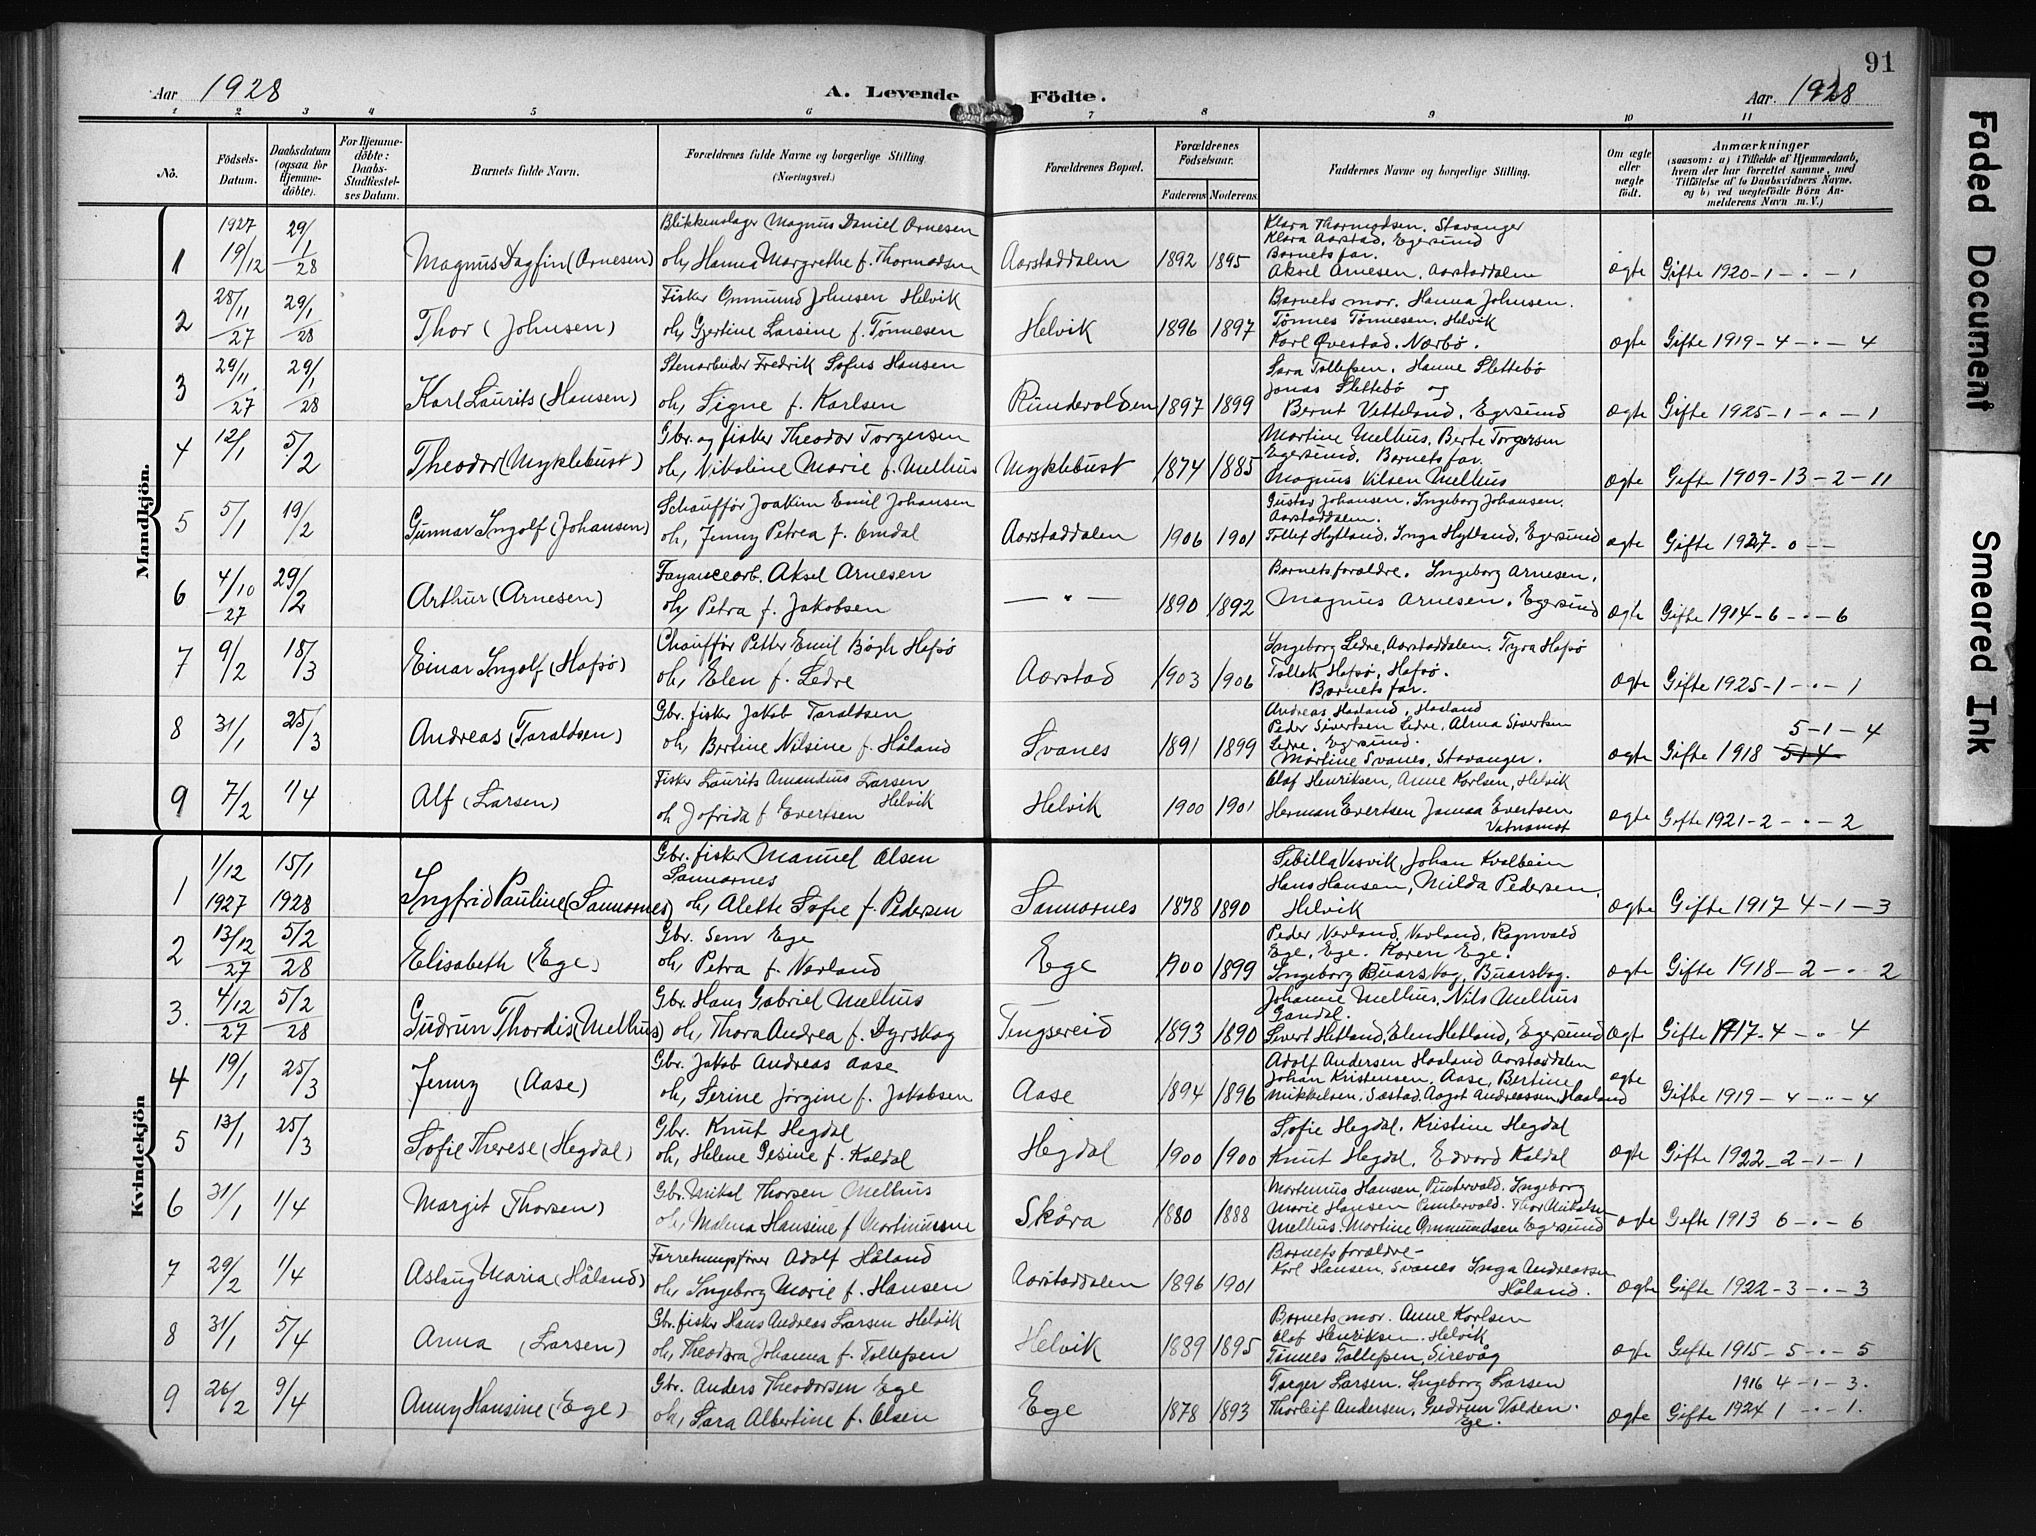 91
Aar 1928
A. Levende Födte.
Aar. 1928
1 2 3 4 5 6 7 8 9 10 11
No.
Födsels-Datum.
Daabsdatum (ogsaa for Hjemme-döbte).
For Hjemme-döbte: Daabs-Stadfæstel-ses Datum.
Barnets fulde Navn.
Forældrenes fulde Navne og borgerlige Stilling (Næringsvei.)
Forældrenes Bopæl.
Forældrenes Födselsaar.
Faderens Moderens
Faddernes Navne og borgerlige Stilling.
Om ægte eller uægte födt.
Anmærkninger
(saasom: a) i Tilfælde af Hjemmedaab, hvem der har forrettet samme, med Tilföielse af to Daabsvidners Navne. og b) ved uægtefödte Börn An-melderens Navn m. V.)
Mandkjön.
1 1927 19/12 29/1 28 Magnus Dagfin (Arnesen)
Blikkenslager Magnus Daniel Arnesen
oh, Hanna Margrethe f. Thormodsen
Aarstaddalen 1892 1895
Klara Thormodsen, Stavanger
Klara Aarstad, Egersund
Barnets far.
Aksel Arnesen, Aarstaddalen
ægte Gifte 1920 - 1 - " - 1
2 28/11 27 29/1 28 Thor (Johnsen)
Fisker Ommund Johnsen Helvik
oh, Gjertine Larsine f. Tønnesen
Helvik 1896 1897
Barnets mor. Hanna Johnsen.
Tønnes Tønnesen, Helvik
Karl Øvestad. Nærbø.
ægte Gifte 1919 - 4 - " - 4
3 29/11 27 29/1 28 Karl Laurits (Hansen)
Stenarbeider Fredrik Sofus Hansen
oh, Signe f. Karlsen
Rundevolden 1897 1899
Sara Tollefsen. Hanne Slettebö
Jonas Slettebö og
Bernt Vetteland, Egersund
ægte Gifte 1925 - 1 - " - 1
4 12/1 5/2 Theodor (Myklebust)
Gbr. og fisker Theodor Torgersen
oh, Nikoline Marie f. Melhus
Myklebust 1874 1885
Martine Melhus, Berte Torgersen
Egersund. Barnets far.
Magnus Vilsen Melhus
ægte Gifte 1909 - 13 - 2 - 11
5 5/1 19/2 Gunnar Ingolf (Johansen)
Schauffør Joakim Emil Johansen
oh, Jenny Petrea f. Omdal
Aarstaddalen 1906 1901
Gustav Johansen. Ingeborg Johansen.
Aarstaddalen.
Tollef Hytland, Inga Hytland, Egersund
ægte Gifte 1927 - 0 - -
6 4/10 27 29/2 Arthur (Arnesen)
Fayancearb. Aksel Arnesen
oh, Petra f. Jakobsen
— " — 1890 1892
Barnets forældre. Ingeborg Arnesen.
Magnus Arnesen. Egersund
ægte Gifte 1914 - 6 - " - 6
7 9/2 18/3 Einar Ingolf (Hafsö)
Chauffør Petter Emil Bøgh Hafsö
oh, Elen f. Ledre
Aarstad 1903 1906
Ingeborg Ledre, Aarstaddalen. Tyra Hafsö
Tollak Hafsö, Hafsö.
Barnets far.
ægte Gifte 1925 - 1 - " - 1
8 31/1 25/3 Andreas (Taraldsen)
Gbr. fisker Jakob Taraldsen
oh, Bertine Nilsine f. Håland
Svanes 1891 1899
Andreas Haaland, Haaland
Peder Sivertsen Ledre, Alma Sivertsen
Ledre. Egersund.
Martine Svanes, Stavanger.
ægte Gifte 1918 5 - 1 - 4
9 7/2 1/4 Alf (Larsen)
Fisker Laurits Amandius Larsen
Helvik
oh Jofrida f Evertsen
Helvik 1900 1901
Olaf Henriksen, Anne Karlsen, Helvik
Herman Evertsen Evertsen
Vatnamot
ægte Gifte 1921 - 2 - " - 2
Kvindekjön
1 1/12 1927 15/1 1928 Ingfrid Pauline (Sannarnes)
Gbr. fisker Manuel Olsen
Sannarnes
oh, Alette Sofie f. Pedersen
Sannarnes 1878 1890
Sibilla Vasvik, Johan Kvalbein
Hans Hansen, Milda Pedersen,
Helvik
ægte Gifte 1917 4 - 1 - 3
2 13/12 27 5/2 28 Elisabeth (Ege)
Gbr. Sem Ege
oh, Petra f. Nerland
Ege 1900 1899
Peder Nerland, Nerland, Ragnvald
Ege, Ege. Karen Ege.
Ingeborg Buarskog, Buarskog.
ægte Gifte 1918 - 2 - " - 2
3. 4/12 27 5/2 28 Gudrun Thordis (Melhus)
Gbr. Hans Gabriel Melhus
oh, Thora Andrea f. Dyrskog
Tengsereid 1893 1890
Johanne Melhus, Nils Melhus
Gandal.
Sivert Hetland, Elen Hetland, Egersund
ægt Gifte 1917 - 4 - " - 4
4 19/1 25/3 Jenny (Aase)
Gbr. Jakob Andreas Aase
oh, Serine Jörgine f. Jakobsen
Aase 1894 1896
Adolf Andersen Haaland Aarstaddalen
Johan Kristensen, Aase, Bertine
Mikkelsen, Sæstad. Aagot Andreassen, Haaland
ægte Gifte 1919 - 4 - " - 4
5 13/1 25/3 Sofie Therese (Hegdal)
Gbr. Knut Hegdal
oh, Helene Gesine f. Kaldal
Hegdal 1900 1900
Sofie Hegdal, Kristine Hegdal
Knut Hegdal, Edvard Kaldal
ægte Gifte 1922 - 2 - 1 - 1
6 31/1 1/4 Margit (Thorsen)
Gbr. Mikal Thorsen Melhus
oh, Malena Hansine f Mortinussen
Skåra 1880 1888
Mortinius Hansen, Puntervold. Ingeborg
Marie Hansen Puntervold. Thor Mikalsen
Melhus, Martine Ommundsen Egersund
ægte Gifte 1913 6 - " - 6
7 29/2 1/4 Aslaug Maria (Håland)
Adolf Håland
oh, Ingeborg Marie f. Hansen
Aarstaddalen 1896 1901
Barnets forældre -
Karl Hansen, Svanes Inga Andreassen
Håland.
ægte Gifte 1922 - 3 - " - 3
8 31/1 5/4 Anna (Larsen)
Gbr. fisker Hans Andreas Larsen Helvik
oh, Theodora Johanna f. Tollefsen
Helvik 1889 1895
Barnets mor. Anne Karlsen
Olaf Henriksen. Helvik
Tønnes Tollefsen, Sirevåg
ægte Gifte 1915 - 5 - " - 5
9 26/2 9/4 Anny Hansine (Ege)
Gbr. Anders Theodorsen Ege
oh, Sara Albertine f. Olsen
Ege 1878 1893
Torger Larsen. Ingeborg Larsen
Thorleif Andersen, Gudrun Valden.
Ege.
ægte Gifte 1916 4 - 1 - 3.
1924 1 - " - 1.
Faded Document
Smeared Ink